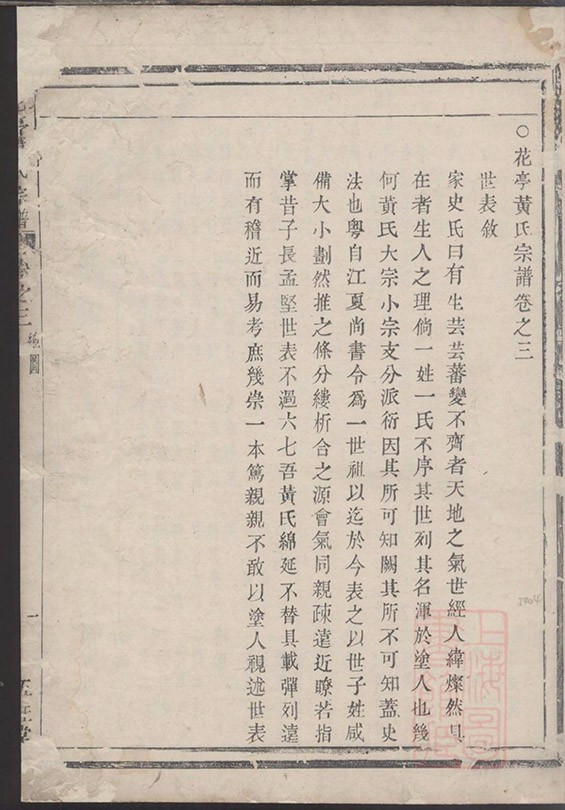 ○花亭黃氏宗譜卷之三
世表敘
家史氏曰有生芸芸蕃變不齊者天地之氣世經人緯燦然具
在者生人之理倘一姓一氏不序其世列其名渾於塗人也幾
何黃氏大宗小宗支分派衍因其所可知闕其所不可知蓋史
法也粵自江夏尚書令爲一世祖以迄於今表之以世子姓咸
備大小劃然推之條分縷析合之源會氣同親疎遠近瞭若指
掌昔子長孟堅世表不過六七吾黃氏綿延不替具載彈列遠
而有稽近而易考庶幾崇一本篤親親不敢以塗人視述世表
氏宗譜
卷之三
一
上海圖